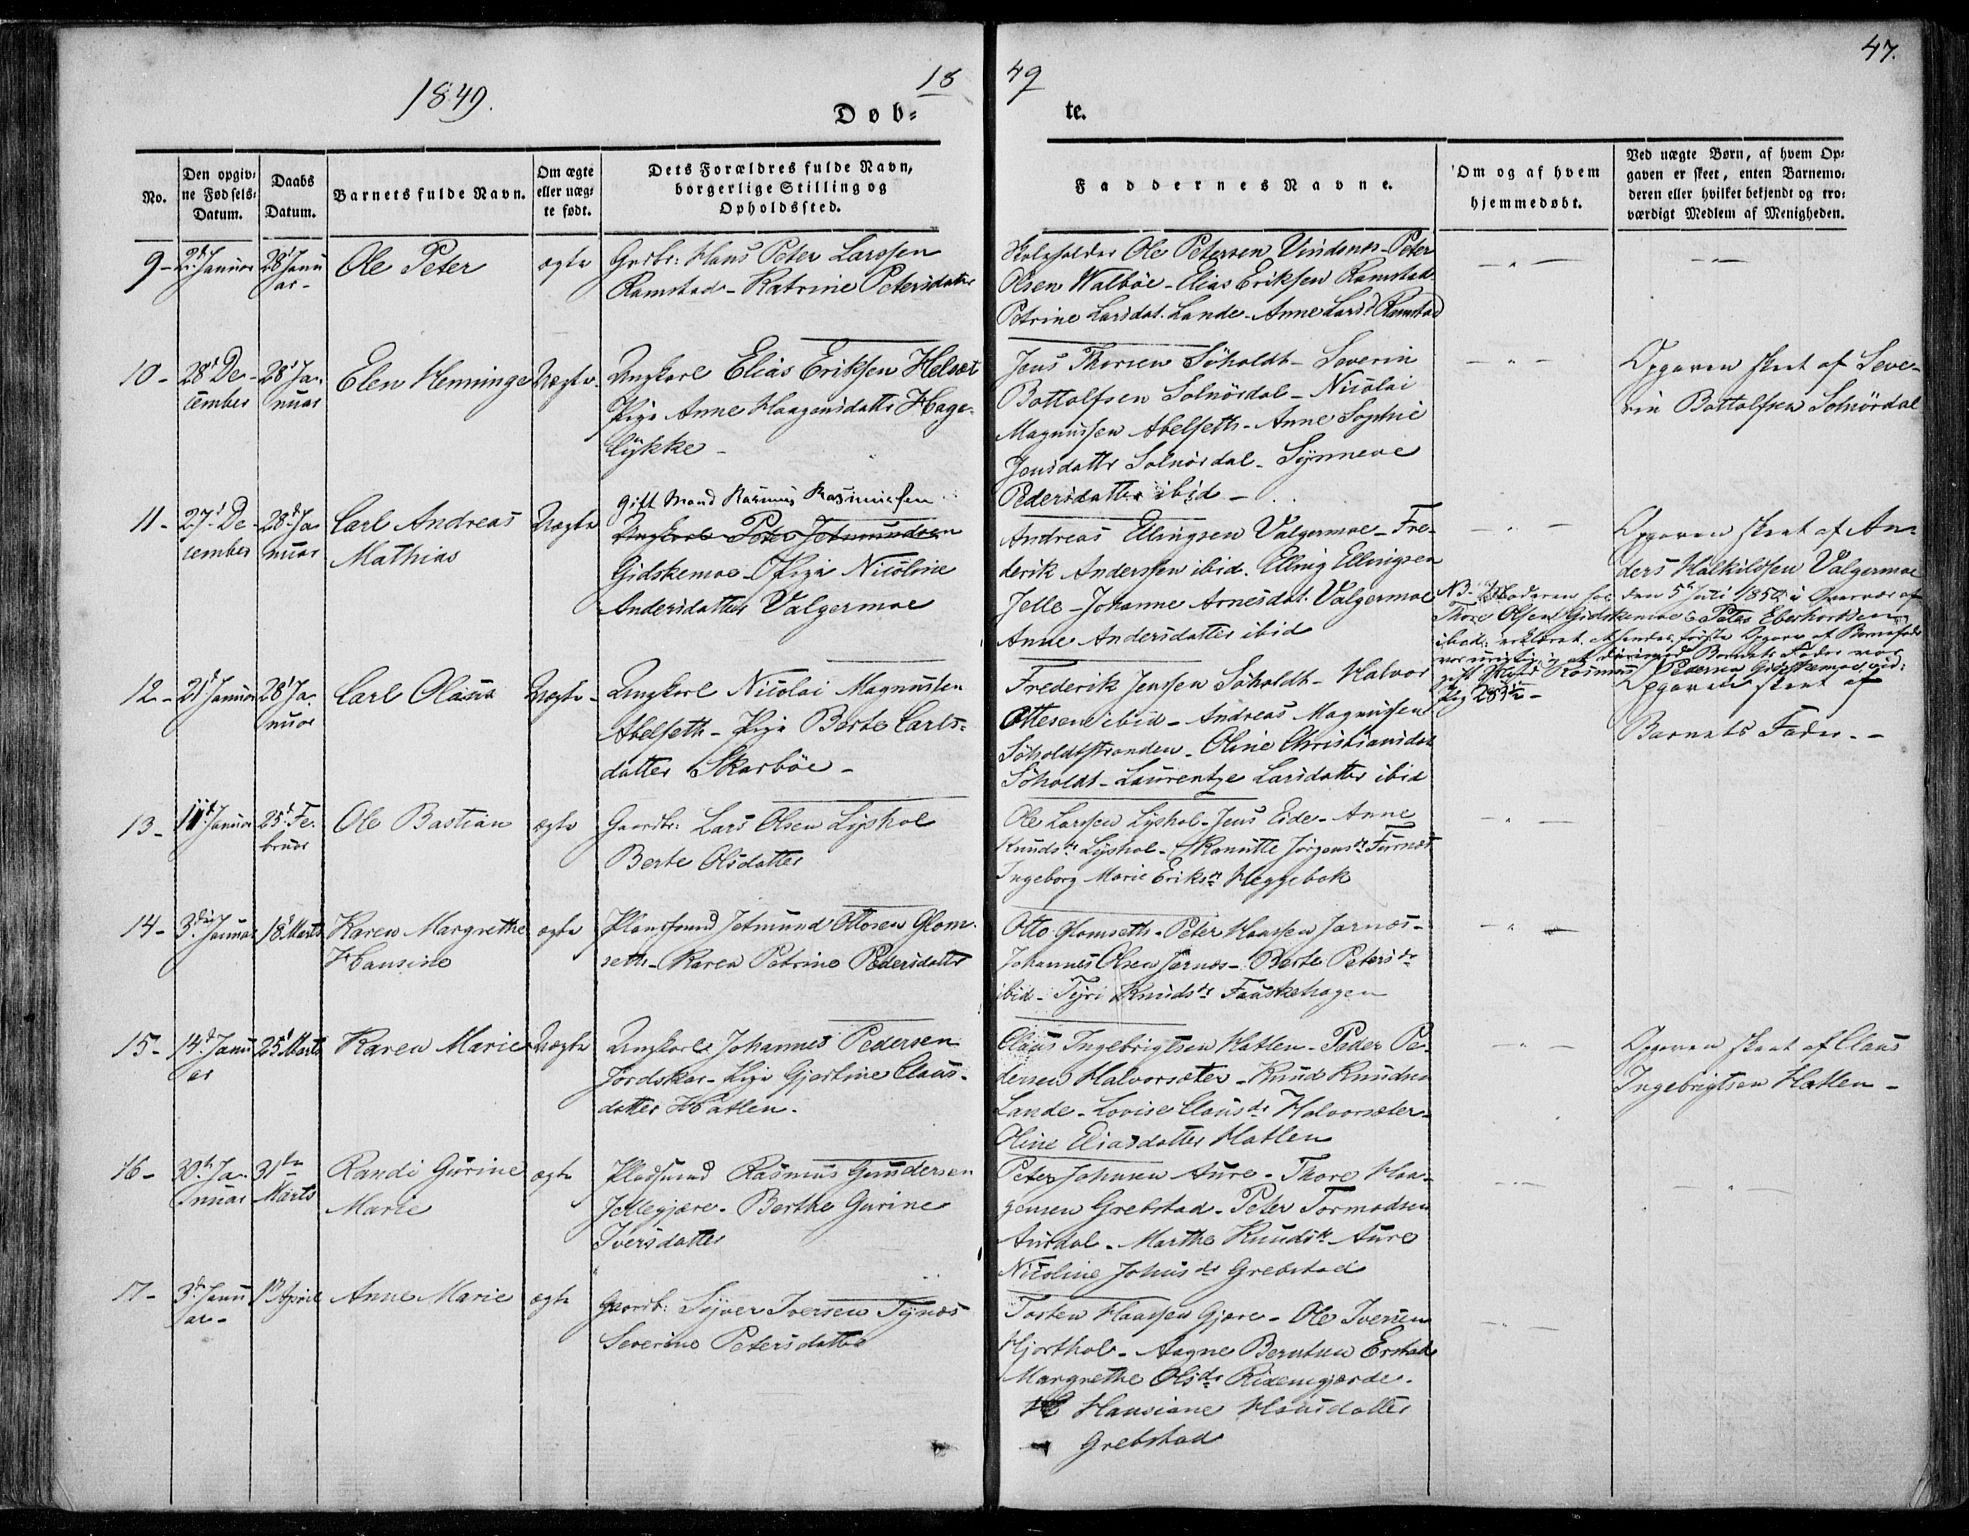 47.
1849.
18
49
Døb-
te.
No.
Den opgiv-
ne Fødsels-
Datum.
Daabs
Datum.
Barnets fulde Navn.
Om ægte
eller uæg-
te født.
Dets Forældres fulde Navn,
borgerlige Stilling og
Opholdssted.
Faddernes Navne.
Om og af hvem
hjemmedøbt.
Ved uægte Børn, af hvem Op-
gaven er skeet, enten Barnemo-
deren eller hvilket bekjendt og tro-
værdigt Medlem af Menigheden.
9 -
Januar
28d Janu
ar -
Ole Peter
ægte
Grdbr: Hans Peter Larssen
Ramstad - Katrine Petersdatter
Skoleholder Ole Petersen Vindsnes - Peter
Olsen Walbøe - Elias Eriksen Ramstad
Petrine Larsdat. Lande - Anne Larsd Ramstad
10 -
28d De-
cember
28d Ja-
nuar
Elen Henninge
Uægte
Ungkarl Elias Eriksen Helset
Pige Anne Haagensdatter Hage-
lykke -
Jens Thorsen Søholdt - Severin
Bottolfsen Solnørdal - Nicolai
Magnussen Abelseth - Anne Sophie
Jensdatter Solnørdal - Synneve
Pedersdatter ibid -
Opgaven skeet af Seve-
rin Bottolfsen Solnørdal
11 -
27d De-
cember
28d Ja
nuar
Carl Andreas
Mathias
Uægte
gift Mand Rasmus Rasmussen
Ungkarl Peter Jetmundsen
Gidskemoe - Pige Nicoline
Andersdatter Valgermoe
Andreas Ellingsen Valgermoe - Fre-
derik Anderssen ibid. Elling Ellingsen
Jelle - Johanne Arnesdat. Valgermoe
Anne Andersdatter ibid
Opgaven skeet af An-
ders Halkildsen Valgermoe
NB. Moderen har den 5te Juli 1850 i Overvær af
Thore Olsen Gidskemoe & Peter Eberhardsen
ibid: erklæret at hendes første Opgave af Barnefader
var urigtig, og at Barnets Fader var
gift Mand Rasmus Pedersen Gidskemoe, vid:
12 -
21d Januar
28d Ja-
nuar
Carl Olaus
Uægte -
Ungkarl Nicolai Magnussen
Abelseth - Pige Berte Carls-
datter Skarbøe -
Frederik Jensen Søholdt - Halvor
Ottesen ibid - Andreas Magnussen
Søholdtstranden - Oline Christiansdat
Søholdt - Laurentze Larsdatter ibid
Opgaven skeet af
Barnets Fader. -
13 -
11d Januar
25d Fe-
bruar
Ole Bastian
ægte
Gaardbr: Lars Olsen Lyshol
Berte Olsdatter
Ole Larssen Lyshol - Jens Eide - Anne
Knudsdr Lyshol - Jørgensdr Furnæs
Ingeborg Marie Eriksdr Heggebak
14 -
3die Januar
18d Marts
Karen Margrethe
Hansine
ægte
Pladsmand Jetmund Ottosen Glom-
seth - Karen Petrine Pedersdatter
Otto Glomseth - Peter Haassen Jarnæs -
Johannes Olsen Jarnæs - Berte Petersdr
ibid - Tyri Knudsdr Fauskehagen
15 -
14d Janu
ar
25d Marts
Karen Marie
Uægte
Ungkarl Johannes Pedersen
Jordskar - Pige Gjertine Claus-
datter Hatlen -
Claus Ingebrigtsen Hatlen - Peder Pe-
dersen Halvorsæter - Knud Knudsen
Lande - Lovise Clausdr Halvorsæter -
Oline Eliasdatter Hatlen
Opgaven skeet af Claus
Ingebrigtsen Hatlen -
16 -
30th Ja-
nuar
31te
Marts
Randi Gurine
Marie
ægte
Pladsmand Rasmus Gundersen
Jellegjære - Berthe Gurine
Iversdatter
Peter Johnsen Aure - Thore Haa-
gensen Grebstad - Peter Tormodsen
Aurdal - Marthe Knudsdr Aure
Nicoline Johnsdr Grebstad
17 -
3d Janu
ar -
1d April
Anne Marie
ægte
Gaardb: Syver Iversen Tynæs
Severine Petersdatter
Torsten Haassen Gjære - Ole Iversen
Hjorthol - Aagne Berntsen Erstad
Margrethe Olsdr Ridemgjærde -
Hansiane Hansdatter
Grebstad